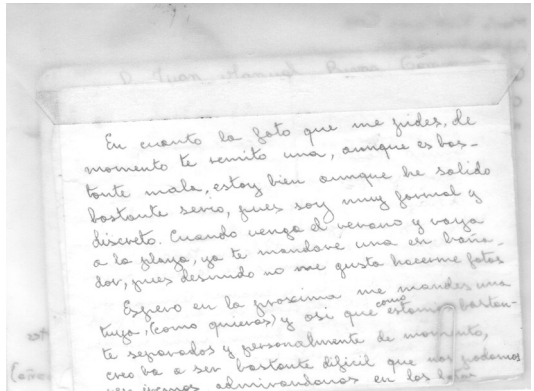 D. Juan Manuel
En cuanto la foto que me pides, de
momento te remito una, aunque es bas-
tante mala, estoy bien aunque he salido
bastante serio, pues soy muy formal y
discreto. Cuando venga el verano y vaya
a la playa, ya te mandaré una en baña-
dor, pues desnudo no me gusta hacerme fotos
Espero en la proxima me mandes una
tuya, (como quieras) y asi que como estamos bastan-
te separados y personalmente de momento,
creo va a ser bastante dificil que nos podamos
admirandonos en las